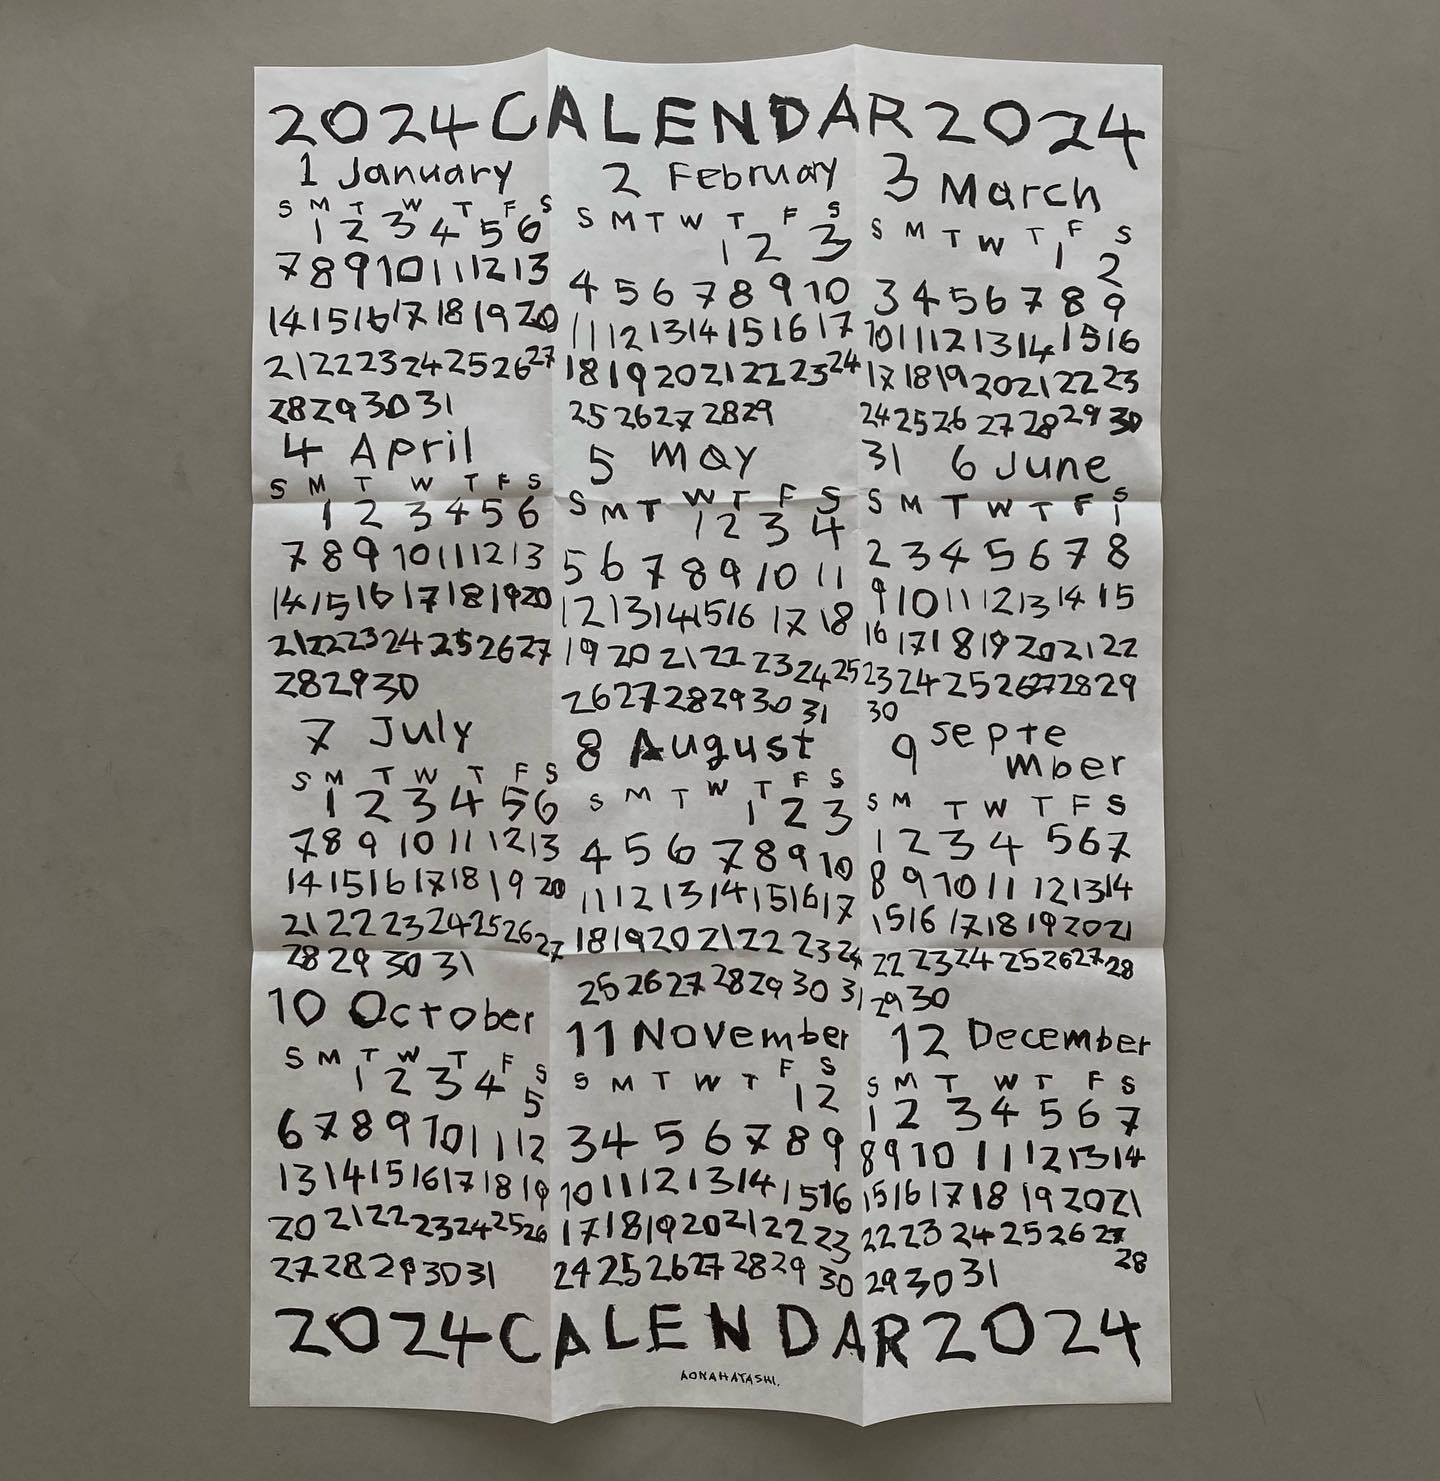 2024 CALENDAR 2024
1 January
S M T W T F S
1 2 3 4 5 6
7 8 9 10 11 12 13
14 15 16 17 18 19 20
21 22 23 24 25 26 27
28 29 30 31
2 February
S M T W T F S
1 2 3
4 5 6 7 8 9 10
11 12 13 14 15 16 17
18 19 20 21 22 23 24
25 26 27 28 29
3 March
S M T W T F S
1 2
3 4 5 6 7 8 9
10 11 12 13 14 15 16
17 18 19 20 21 22 23
24 25 26 27 28 29 30
31
4 April
S M T W T F S
1 2 3 4 5 6
7 8 9 10 11 12 13
14 15 16 17 18 19 20
21 22 23 24 25 26 27
28 29 30
5 May
S M T W T F S
1 2 3 4
5 6 7 8 9 10 11
12 13 14 15 16 17 18
19 20 21 22 23 24 25
26 27 28 29 30 31
6 June
S M T W T F S
1
2 3 4 5 6 7 8
9 10 11 12 13 14 15
16 17 18 19 20 21 22
23 24 25 26 27 28 29
30
7 July
S M T W T F S
1 2 3 4 5 6
7 8 9 10 11 12 13
14 15 16 17 18 19 20
21 22 23 24 25 26 27
28 29 30 31
8 August
S M T W T F S
1 2 3
4 5 6 7 8 9 10
11 12 13 14 15 16 17
18 19 20 21 22 23 24
25 26 27 28 29 30 31
9 septe
mber
S M T W T F S
1 2 3 4 5 6 7
8 9 10 11 12 13 14
15 16 17 18 19 20 21
22 23 24 25 26 27 28
29 30
10 October
S M T W T F S
1 2 3 4 5
6 7 8 9 10 11 12
13 14 15 16 17 18 19
20 21 22 23 24 25 26
27 28 29 30 31
11 November
S M T W T F S
1 2
3 4 5 6 7 8 9
10 11 12 13 14 15 16
17 18 19 20 21 22 23
24 25 26 27 28 29 30
12 December
S M T W T F S
1 2 3 4 5 6 7
8 9 10 11 12 13 14
15 16 17 18 19 20 21
22 23 24 25 26 27 28
29 30 31
2024 CALENDAR 2024